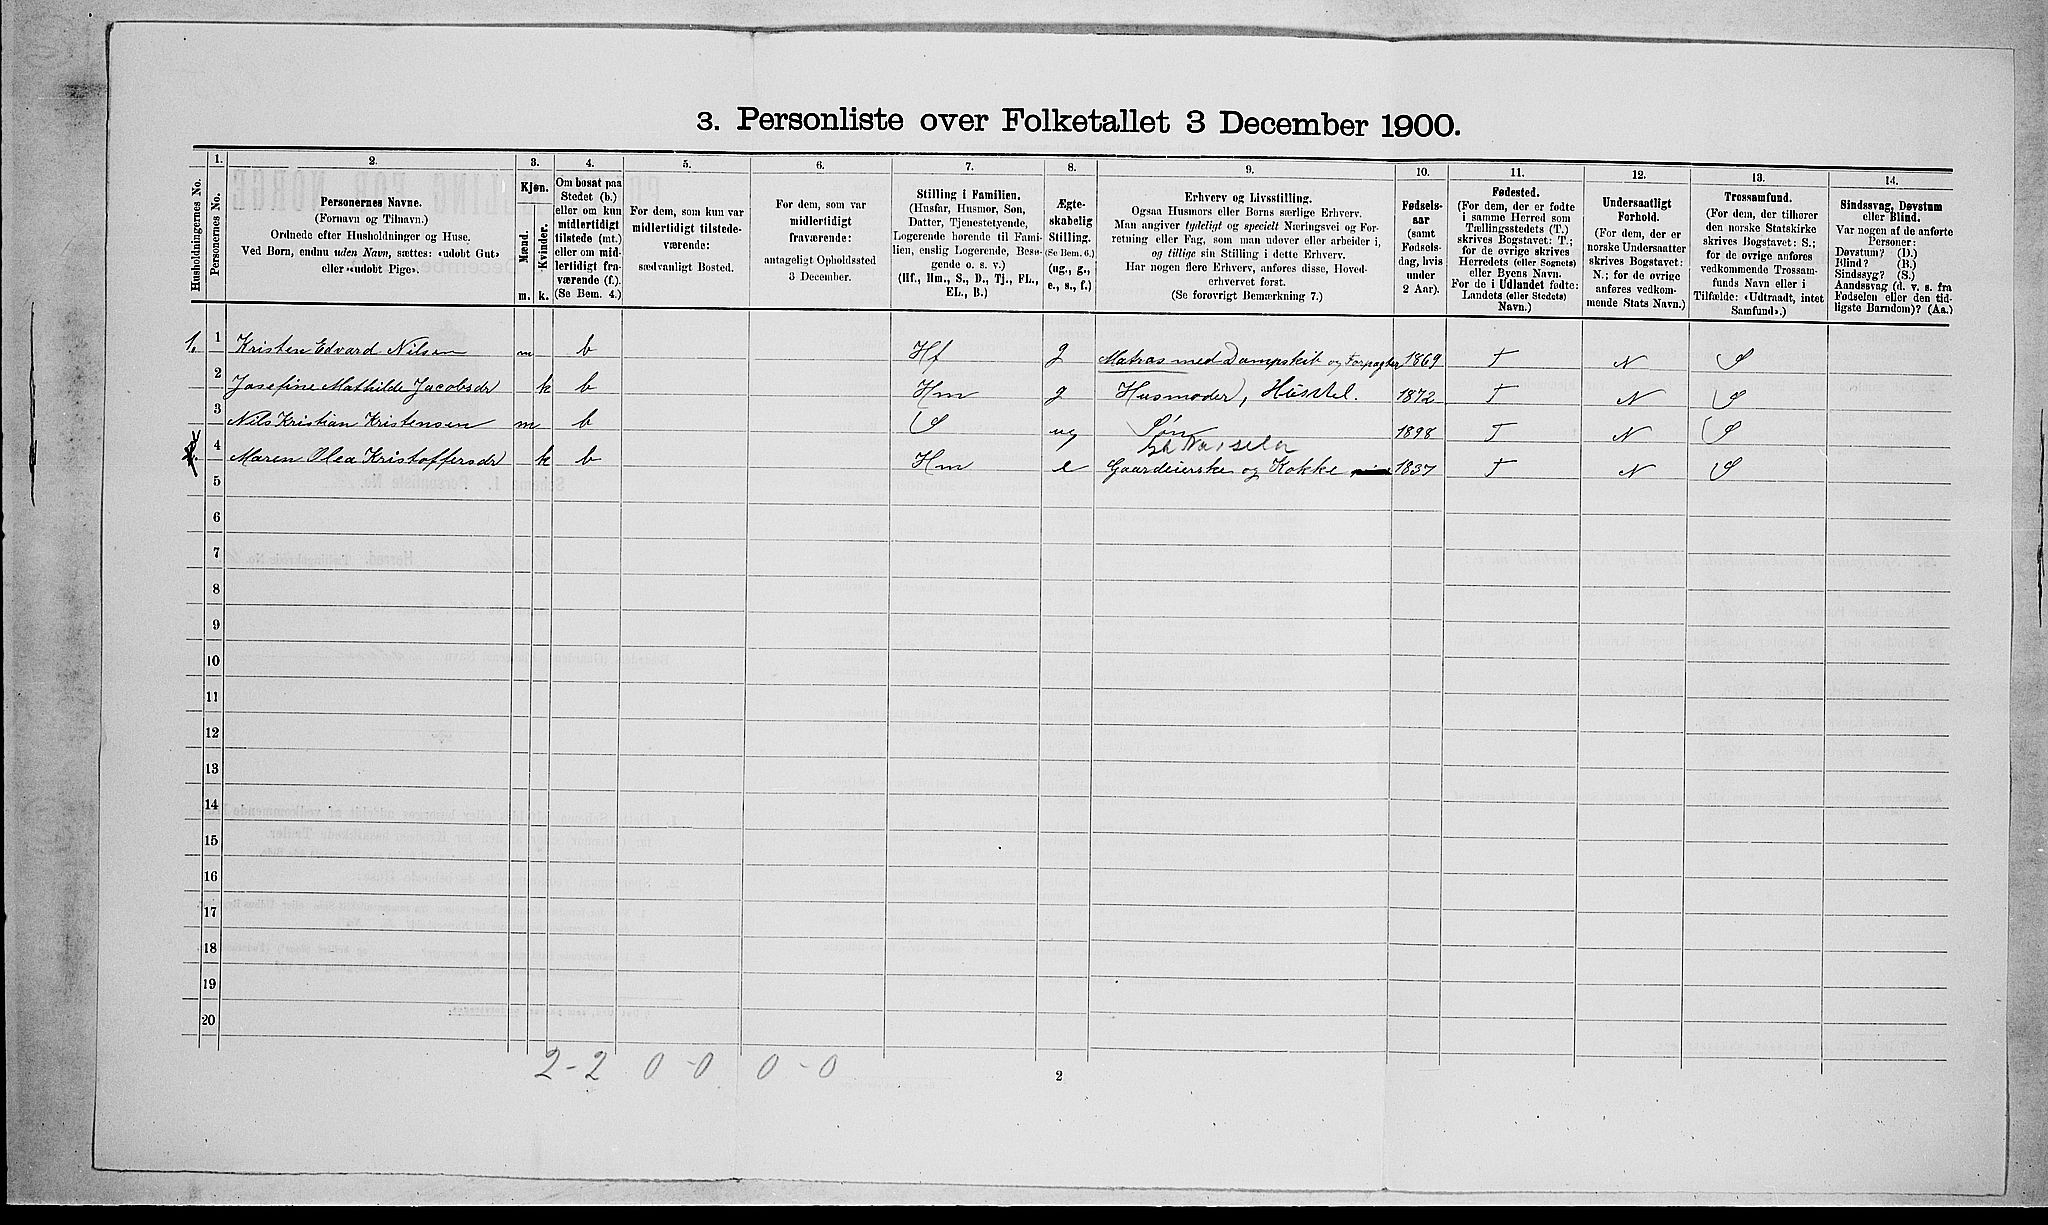 3. Personliste over Folketallet 3 December 1900.
Husholdningernes No.
1.
Personernes No.
2.
Personernes Navne.
(Fornavn og Tilnavn.)
Ordnede efter Husholdninger og Huse.
Ved Børn, endnu uden Navn, sættes: «udobt Gut»
eller «udobt Pige».
3.
Kjøn.
Mænd.
Kvinder.
m. k.
4.
Om bosat paa
Stedet (b.)
eller om kun
midlertidigt
tilstede (mt.)
eller om mid-
lertidigt fra-
værende (f.).
(Se Bem. 4.)
5.
For dem, som kun var
midlertidigt tilstede-
værende:
sædvanligt Bosted.
6.
For dem, som var
midlertidigt
fraværende:
antageligt Opholdssted
3 December.
7.
Stilling i Familien.
(Husfar, Husmor, Søn,
Datter, Tjenestetyende,
Logerende hørende til Fami-
lien, enslig Logerende, Besø-
gende o. s. v.)
(Hf., Hm., S., D., Tj., FL.,
EL., B.)
8.
Ægte-
skabelig
Stilling.
(Se Bem. 6.)
(ug., g.,
e., s., f.)
9.
Erhverv og Livsstilling.
Ogsaa Husmors eller Børns særlige Erhverv.
Man angiver tydeligt og specielt Næringsvei og For-
retning eller Fag, som man udøver eller arbeider i,
og tillige sin Stilling i dette Erhverv.
Har nogen flere Erhverv, anføres disse, Hoved-
erhvervet først.
(Se forøvrigt Bemærkning 7.)
10.
Fødsels-
aar
(samt
Fødsels-
dag, hvis
under
2 Aar).
11.
Fødested.
(For dem, der er fødte
i samme Herred som
Tællingsstedets (T.)
skrives Bogstavet: T.;
for de øvrige skrives
Herredets (eller Sognets)
eller Byens Navn.
For de i Udlandet fødte:
Landets (eller Stedets)
Navn.)
12.
Undersaatligt
Forhold.
(For dem, der er
norske Undersaatter
skrives Bogstavet:
N.; for de øvrige
anføres vedkom-
mende Stats Navn.)
13.
Trossamfund.
(For dem, der tilhører
den norske Statskirke
skrives Bogstavet: S.;
for de øvrige anføres
vedkommende Trossam-
funds Navn eller i
Tilfælde: «Udtraadt, intet
Samfund».)
14.
Sindssvag, Døvstum
eller Blind.
Var nogen af de anførte
Personer:
Døvstum? (D.)
Blind? (B.)
Sindssyg? (S.)
Aandssvag (d. v. s. fra
Fødselen eller den tid-
ligste Barndom)? (Aa.)
1. 1 Kristen Edvard Nilsen m b Hf g Matros med Dampskib og Forpagter 1869 T N S
2 Josefine Mathilde Jacobsdr k b Hm g Husmoder, Husstel. 1872 T N S
3 Nils Kristian Kristensen m b S ug Søn 1898 T N S
4 Maren Olea Kristoffersdr k b Hm e Gaardeierske og Kokke 1837 T N S
5
6
7
8
9
10
11
12
13
14
15
16
17
18
19
20
2-2 0-0 0-0
2